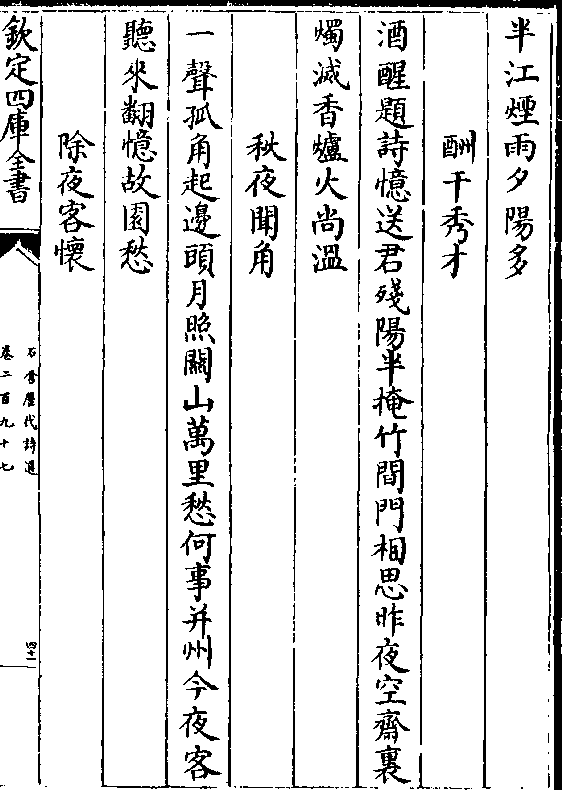 半江煙雨夕陽多
酬干秀才
酒醒題詩憶送君殘陽半掩竹間門相思昨夜空齋裏
燭滅香爐火尚溫
秋夜聞角
一聲孤角起邊頭月照關山萬里愁何事并州今夜客
聽來翻憶故園愁
除夜客懷
欽定四庫全書
石倉歷代詩選
卷二百九十七
四十一